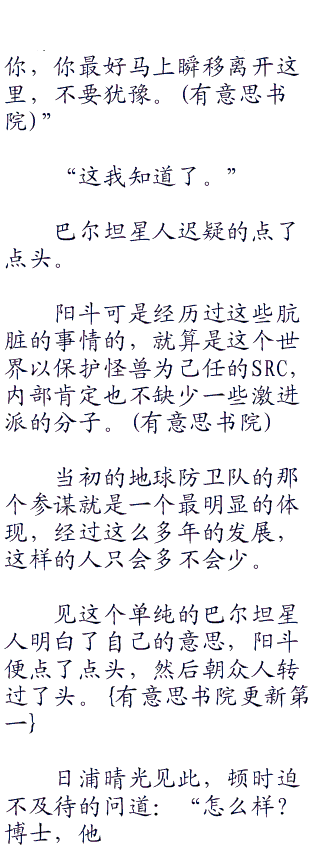 你，你最好马上瞬移离开这
里，不要犹豫。(有意思书
院)”
“这我知道了。”
巴尔坦星人迟疑的点了
点头。
阳斗可是经历过这些肮
脏的事情的，就算是这个世
界以保护怪兽为己任的SRC，
内部肯定也不缺少一些激进
派的分子。(有意思书院)
当初的地球防卫队的那
个参谋就是一个最明显的体
现，经过这么多年的发展，
这样的人只会多不会少。
见这个单纯的巴尔坦星
人明白了自己的意思，阳斗
便点了点头，然后朝众人转
过了头。{有意思书院更新第
一}
日浦晴光见此，顿时迫
不及待的问道：“怎么样？
博士，他